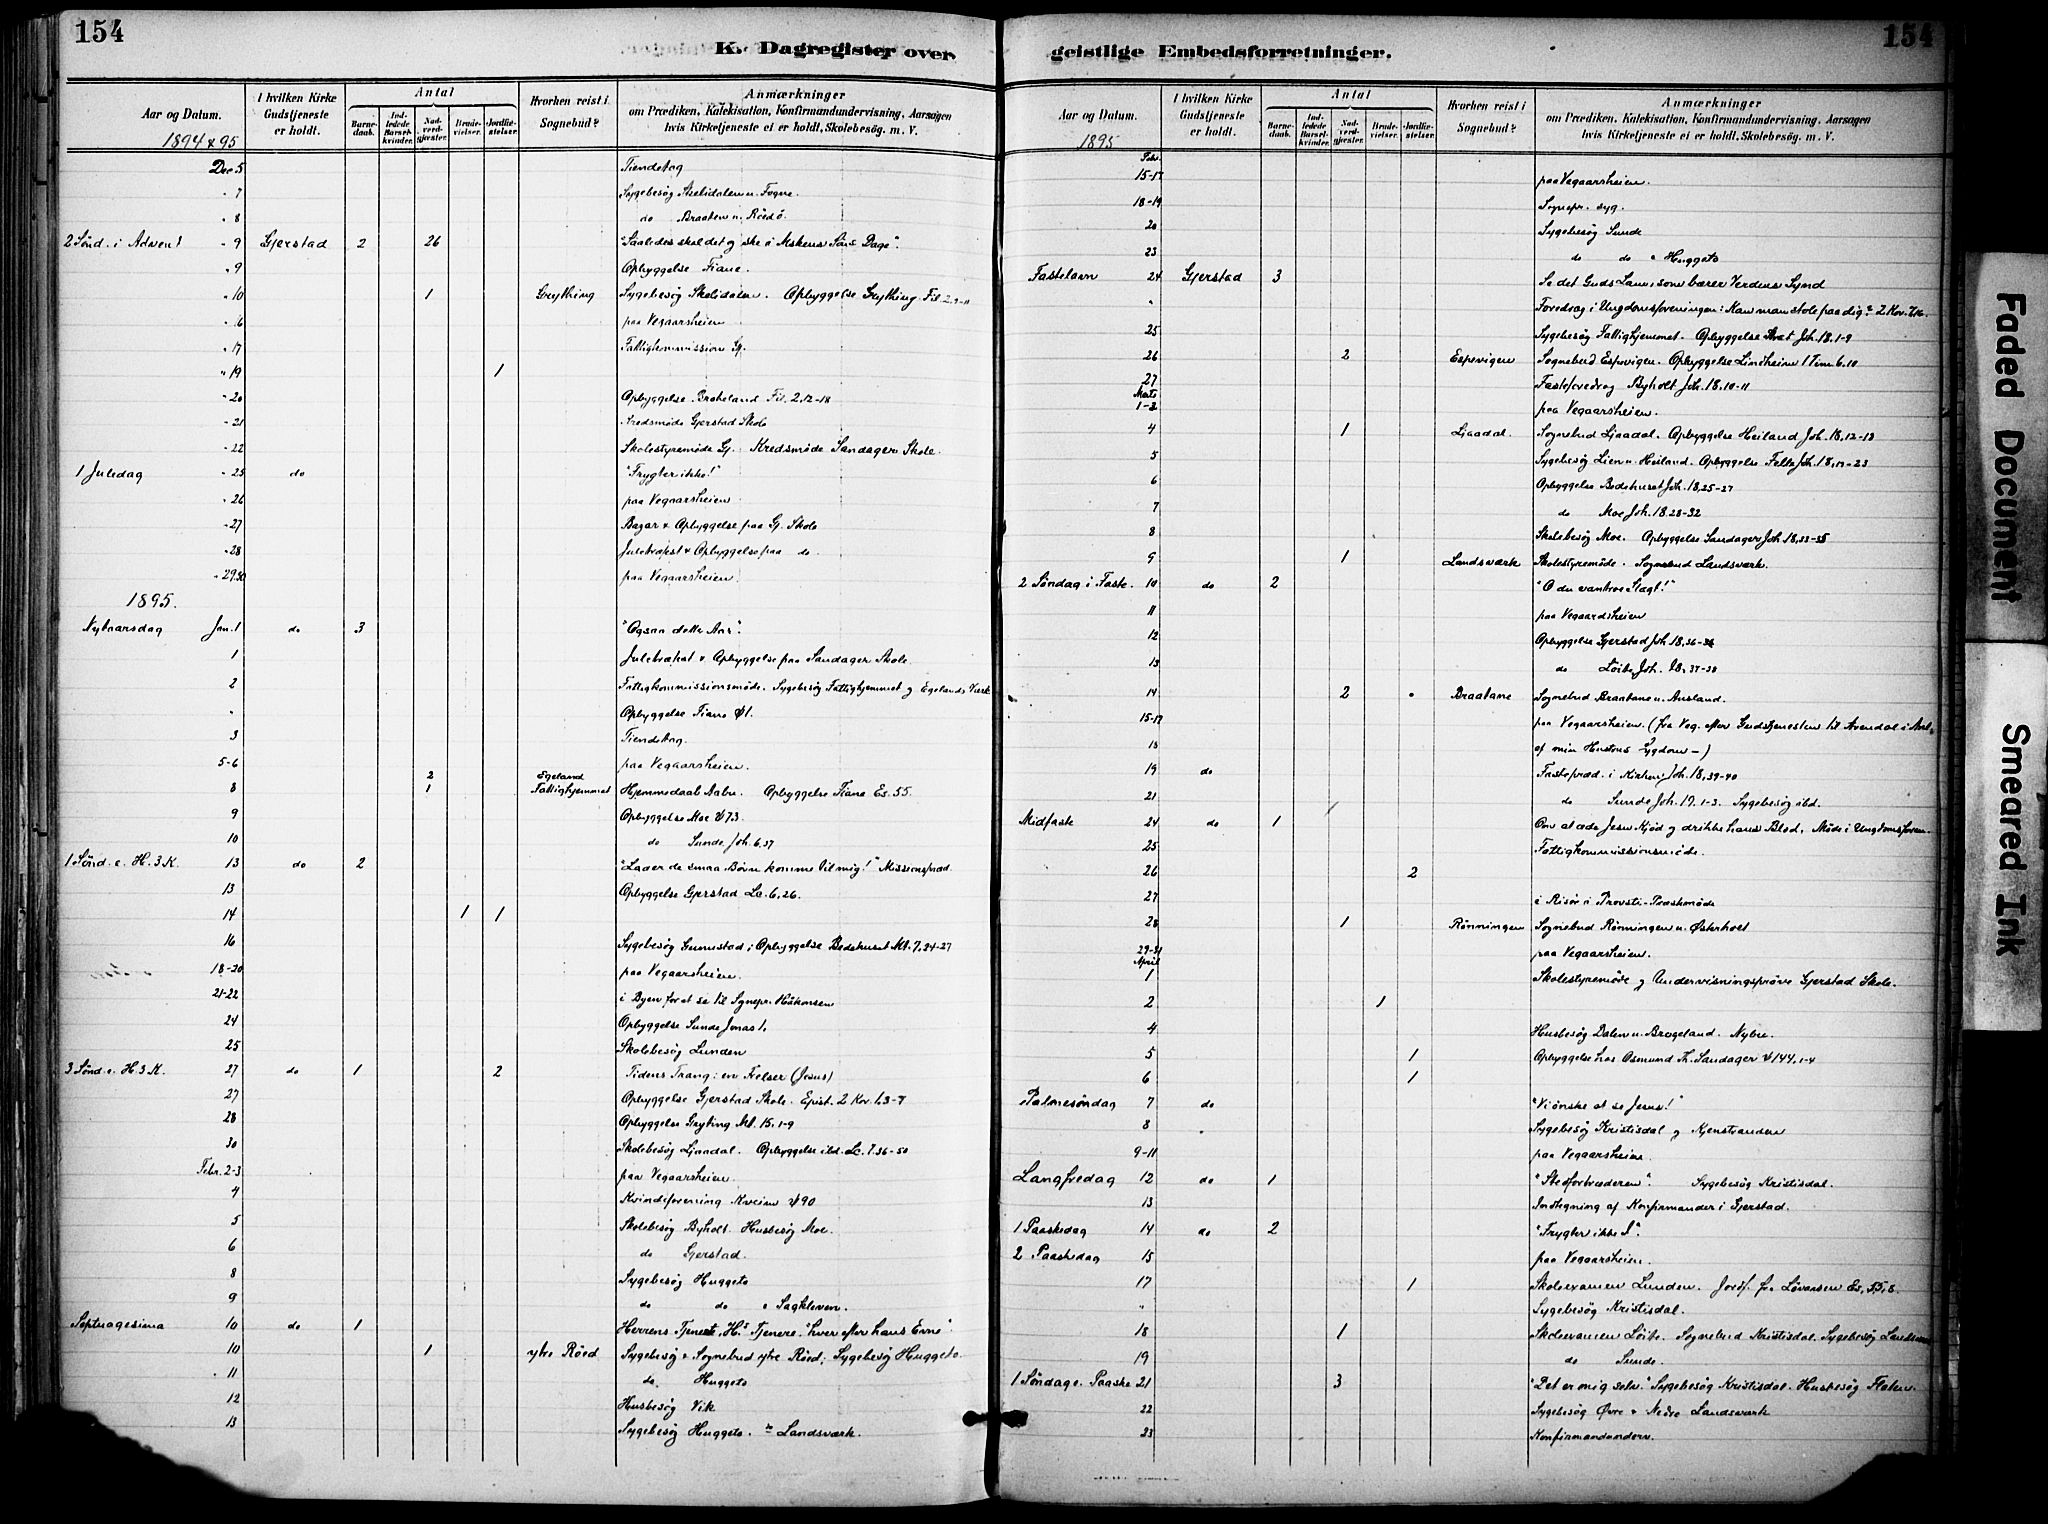 154
K. Dagregister over
Aar og Datum.
I hvilken Kirke Gudstjeneste er holdt.
Antal
Barnedaab.
Indledede Barselkvinder.
Nadverdgjester.
Brudevielser.
Jordfæstelser.
Hvorhen reist i Sognebud?
Anmærkninger
om Prædiken, Katekisation, Konfirmandundervisning, Aarsagen
hvis Kirketjeneste ei er holdt, Skolebesøg. m. V.
1894 & 95
Dec 5 Tiendetag
" 7 Sygebesøg Skelidalen u. Fogne.
" 8 do Braaten u. Röed ö.
2 Sönd. i Advent " 9 Gjerstad 2 26 "Saaledes skal det og ske i Mskens Søns Dage".
" 9 Opbyggelse Tiane.
" 10 1 Grything Sygebesøg Skelidalen. Opbyggelse Grything Fil. 2,1-11
" 16 paa Vegaarsheien
" 17 Fattigkommission Gj.
" 19 1
" 20 Opbyggelse Brokeland Fil. 2,12-18
" 21 Kredsmöde Gjerstad Skole
" 22 Skolestyremöde Gj. Kredsmöde Sandager Skole.
1 Juledag " 25 do "Frygter ikke!"
" 26 paa Vegaarsheien
" 27 Bazar & Opbyggelse paa Gj. Skole
" 28 Juletræfest & Opbyggelse paa do
" 29.30 paa Vegaarsheien
1895.
Nytaarsdag Jan. 1 do 3 "Ogsaa dette Aar".
1 Juletræfest & Opbyggelse paa Sandager Skole.
2 Fattigkommissionsmöde. Sygebesøg Fattighjemmet og Egelands Værk
" Opbyggelse Tiane ψ 1.
3 Tiendetag.
5-6 paa Vegaarsheien.
8 2 1 Egeland Fattighjemmet Hjemmedaab Aabu. Opbyggelse Tiane Es. 55.
9 Opbyggelse Moe ψ 73
10 do Sunde Joh. 6,37
1 Sönd. e. H. 3 K. 13 do 2 "Lader de smaa Børn komme til mig!" Missionspræd.
13 Opbyggelse Gjerstad Lc. 6,26.
14 1 1
16 Sygebesøg Gunnistad; Opbyggelse Bedehuset Mt. 7,24-27
18-20 paa Vegaarsheien
21-22 i Byen for at se til Sognepr. Håkonsen
24 Opbyggelse Sunde Jonas 1.
25 Skolebesøg Lunden
3 Sönd. e. H. 3 K. 27 do 1 2 Tidens Trang: en Frelser (Jesus)
27 Opbyggelse Gjerstad Skole. Epist. 2 Kor. 1,3-7
28 Opbyggelse Gryting Mt. 15,1-9
30 Skolebesøg Ljaadal. Opbyggelse ibd. Lc. 7.36-50
Febr. 2-3 paa Vegaarsheien
4 Kvindeforening Kveim ψ 90
5 Skolebesøg Byholt. Husbesøg Moe.
6 do Gjerstad.
8 Sygebesøg Huggeto
9 do do & Sagkleven.
Septuagesima 10 do 1 Herrens Tjeneste, H.s Tjenere. "hver efter hans Evne".
10 1 ytre Röed Sygebesøg & Sognebud ytre Röed; Sygebesøg Huggeto.
11 do. Huggeto
12 Husbesøg Vik
13 Sygebesøg Huggeto. do Landsværk.
154
geistlige Embedsforretninger.
Aar og Datum.
I hvilken Kirke Gudstjeneste er holdt.
Antal
Barnedaab.
Indledede Barselkvinder.
Nadverdgjester.
Brudevielser.
Jordfæstelser.
Hvorhen reist i Sognebud?
Anmærkninger
om Prædiken, Katekisation, Konfirmandundervisning, Aarsagen
hvis Kirketjeneste ei er holdt, Skolebesøg. m. V.
1895
Febr. 15-17 paa Vegaarsheien.
18-19 Sognepr. syg.
20 Sygebesøg Sunde
23 do do & Huggeto
Fastelavn 24 Gjerstad 3 Se det Guds Lam som bærer Verdens Synd
" Foredrag i Ungdomsforeningen: Kan man stole paa dig? 2 Kor. 7,16.
25 Sygebesøg Fattighjemmet. Opbyggelse Aret Joh. 18.1-9
26 2 Espevigen Sognebud Espevigen. Opbyggelse Lindheim 1 Tim. 6,10
27 Fasteforedrag Byholt Joh. 18,10-11
Marts 1-3 paa Vegaarsheien.
4 1 Ljaadal. Sognebud Ljaadal. Opbyggelse Heiland Joh. 18,12-18
5 Sygebesøg Lien u. Heiland. Opbyggelse Felle Joh. 18,19-23
6 Opbyggelse Bedehuset Joh. 18,25-27
7 do Moe Joh. 18.28-32
8 Skolebesøg Moe. Opbyggelse Sandager Joh. 18,33-35
9 1 Landsværk Skolestyremöde. Sognebud Landsværk.
2 Søndag i Faste. 10 do 2 "O du vantroe Slægt!"
11 paa Vegaardsheien
12 Opbyggelse Gjerstad Joh. 18,36-38
13 do Löite Joh. 18,37-38
14 2 Braatane Sognebud Braatane u. Ausland.
15-17 paa Vegaarsheien (fra Veg. efter Gudstjenesten til Arendal i Anl.
18 af min Hustrus Sygdom -)
19 do Fastepræd. i Kirken: Joh. 18,39-40
21 do Sunde Joh. 19,1-3. Sygebesøg ibd.
Midfaste 24 do 1 Om at æde Jesu Kjød og drikke hans Blod. Møde i Ungdomsforen.
25 Fattigkommissionsmöde.
26 2
27 i Risør i Provsti-Præstemöde
28 1 Rønningen Sognebud Rønningen u. Østerholt
29-31 paa Vegaarsheien.
April 1 Skolestyremöde og Undervisningsprøve Gjerstad Skole.
2 1
4 Husbesøg Dalen u. Brogeland. Nybro.
5 1 Opbyggelse hos Osmund Th. Sandager ψ 144,1-4
6 1
Palmesøndag 7 do "Vi ønske at se Jesus!"
8 Sygebesøg Kristisdal og Kjenstranden
9-11 paa Vegaarsheien.
Langfredag 12 do 1 "Stedfortræderen". Sygebesøg Kristisdal.
13 Indtegning af Konfirmander i Gjerstad.
1 Paaskedag 14 do 2 "Frygter ikke I".
2 Paaskedag 15 paa Vegaarsheien.
17 1 Skoleexamen Lunden. Jordf. fra Løvaasen Es. 55,8.
" Sygebesøg Kristisdal.
18 1 Skoleexamen Löite. Sognebud Kristisdal. Sygebesøg
19 do Sunde.
1 Søndag e. Paaske 21 3 "Det er mig selv." Sygebesøg Kristisdal. Husbesøg Flaten.
22 Sygebesøg Övre & Nedre Landsværk
23 Konfirmandunderv.
Faded Document
Smeared Ink